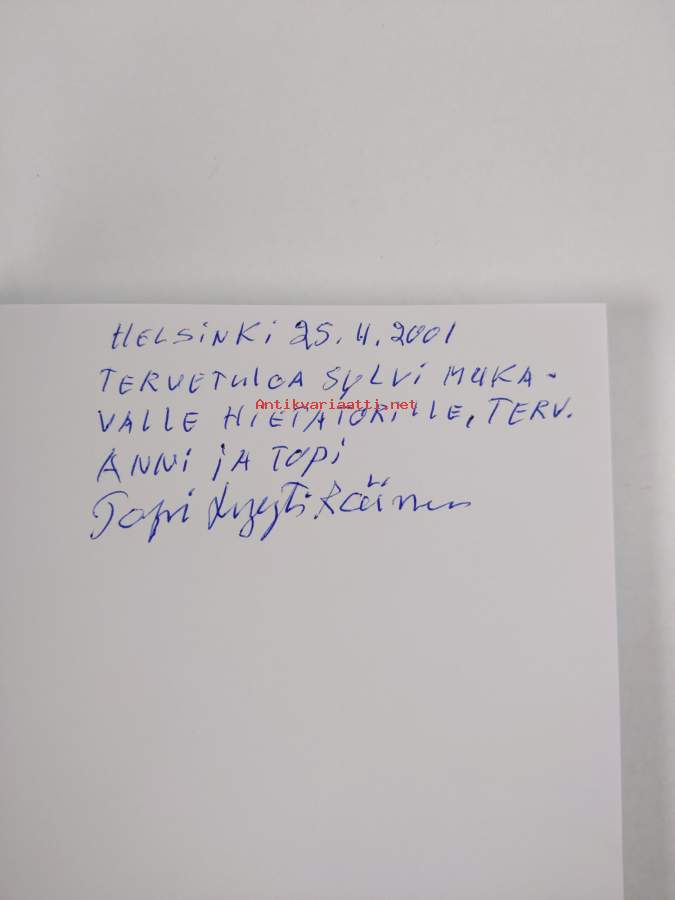 HELSINKI 25.4.2001
TERVETULOA SYLVI MUKA-
VALLE HIETATORILLE, TERV.
Antikvariaatti.net
ANNI JA TOPI
Topi Räinen